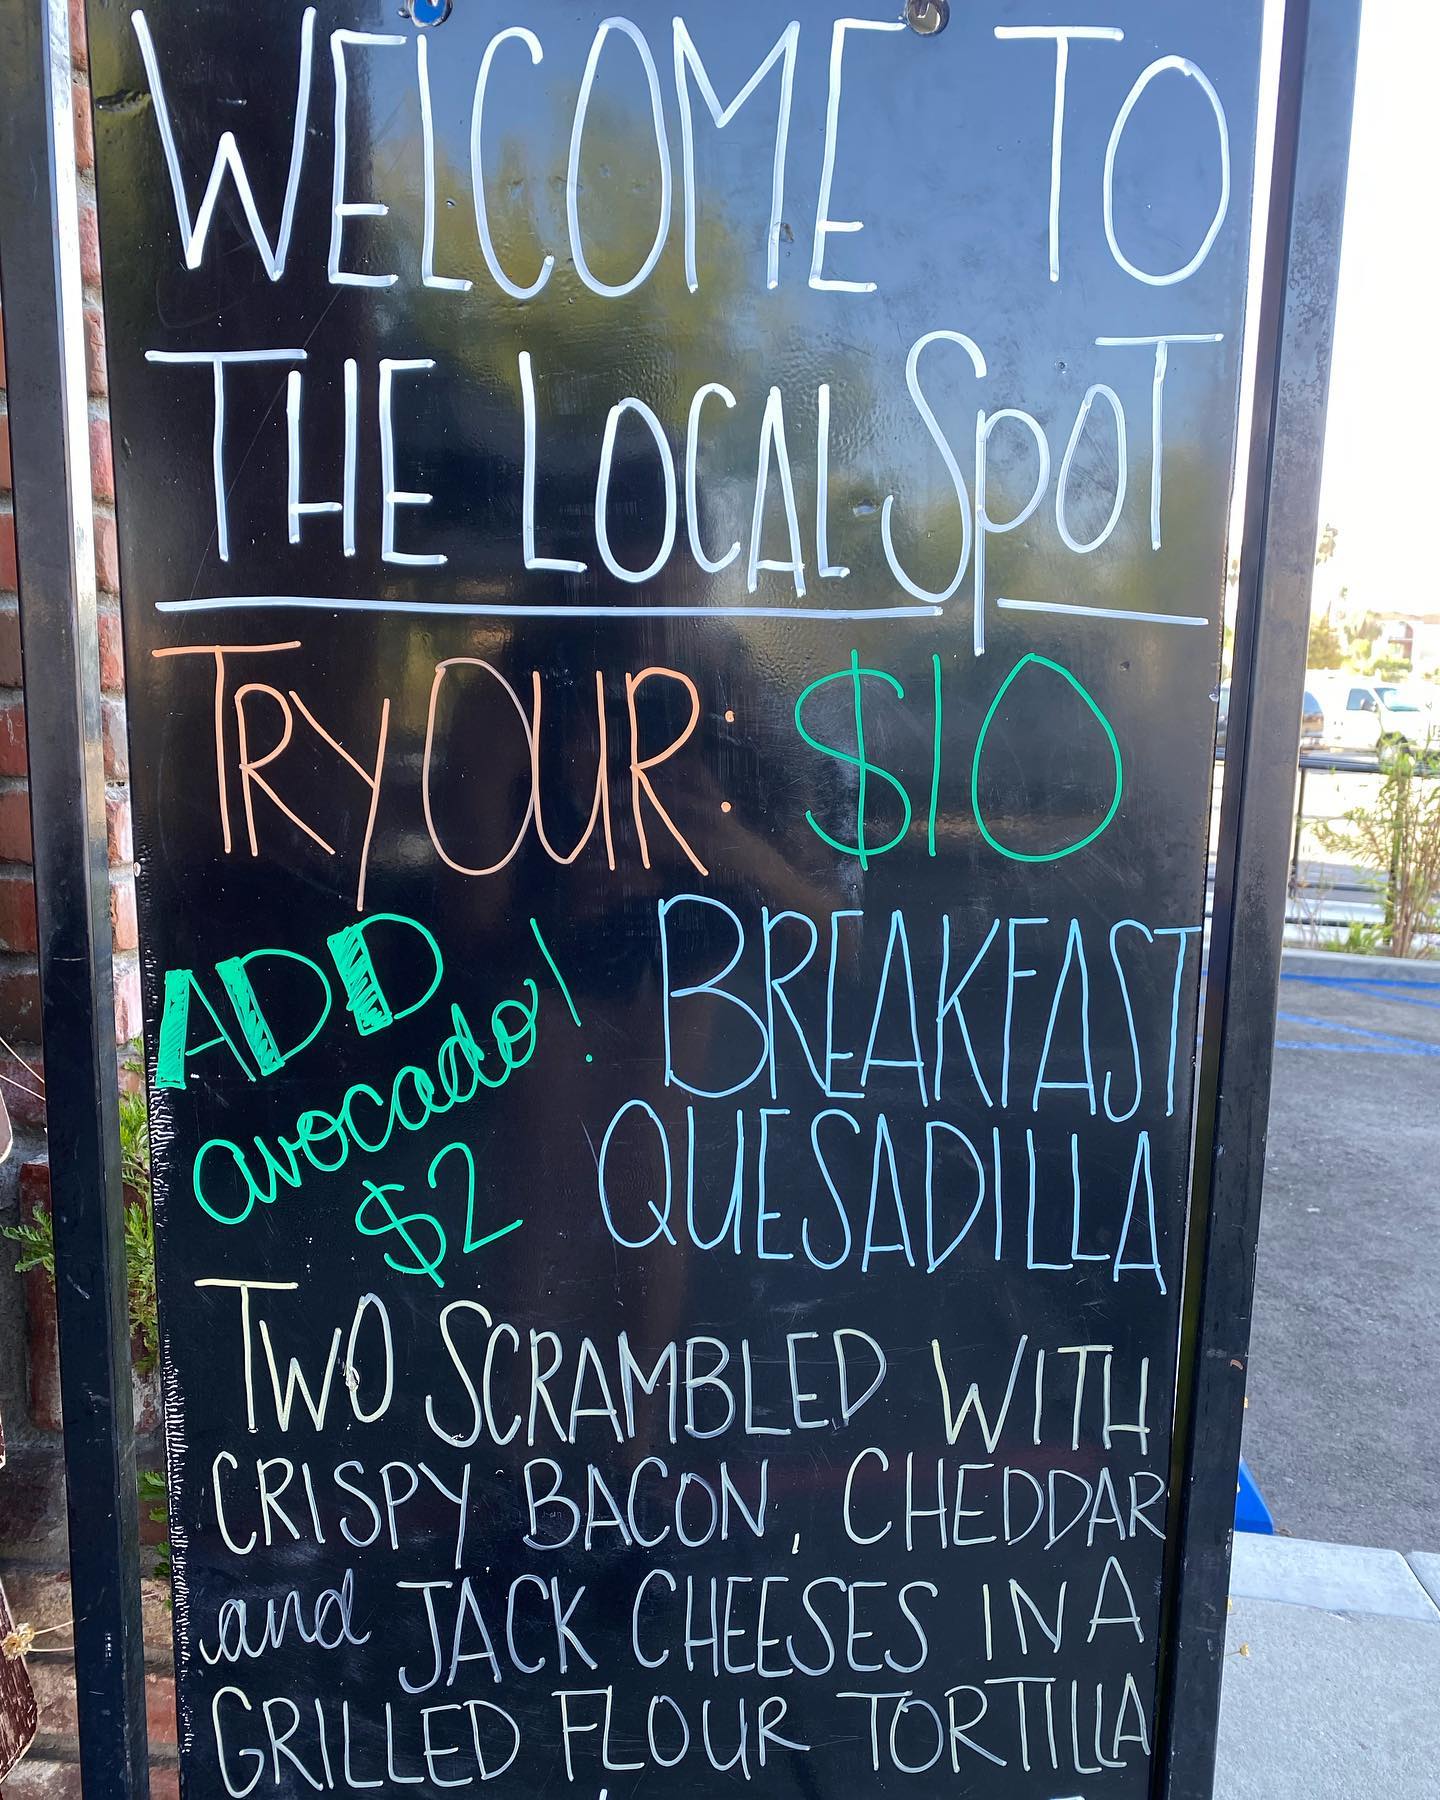 WELCOME TO
THE LOCAL SpOT
TRY OUR: $10
ADD
avocado!
$2
BREAKFAST
QUESADILLA
TWO SCRAMBLED WITH
CRISPY BACON, CHEDDAR
and JACK CHEESES IN A
GRILLED FLOUR TORTILLA